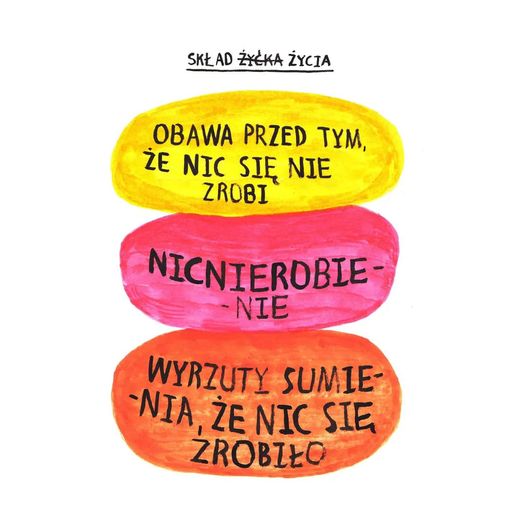 SKŁAD ŻYĆKA ŻYCIA
OBAWA PRZED TYM,
ŻE NIC SIĘ NIE
ZROBI
NICNIEROBIE-
-NIE
WYRZUTY SUMIE-
-NIA, ŻE NIC SIĘ
ZROBIŁO